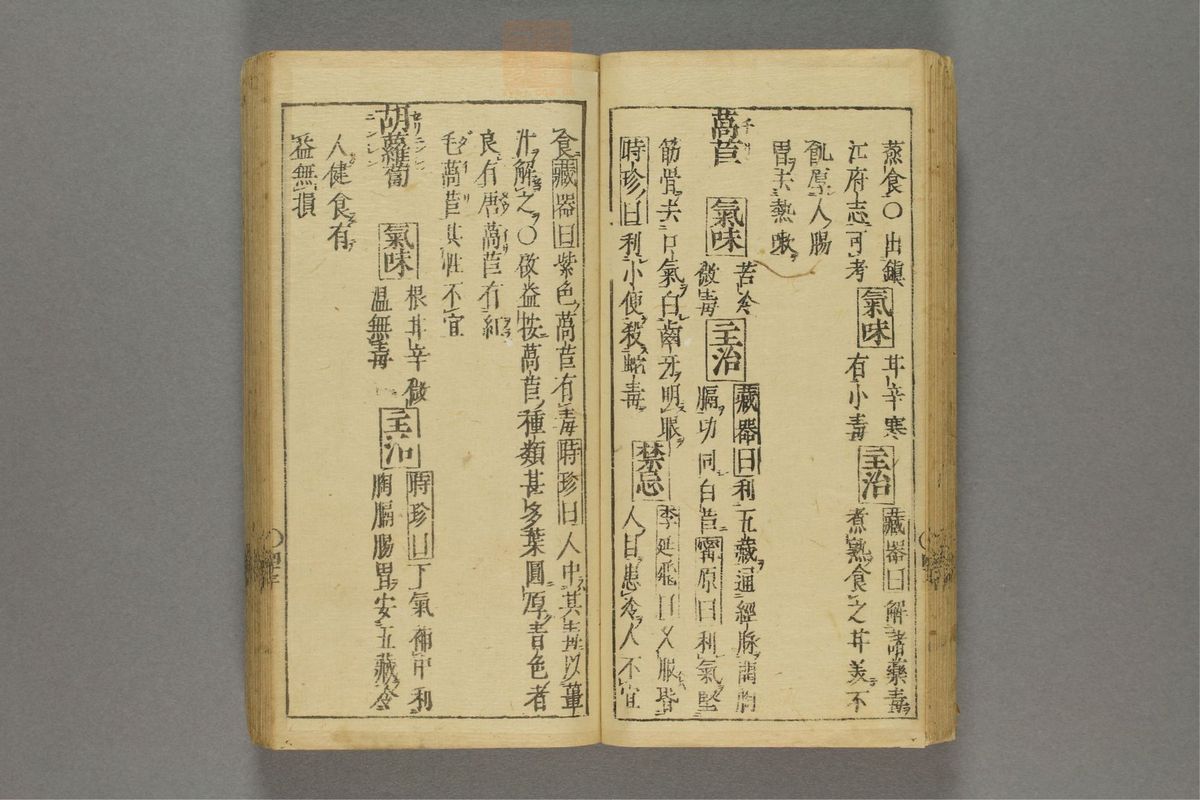 蒸食〇出鎮
江府志可考
氣味
甘辛寒
有小毒
主治
藏器曰解諸藥毒
煮熟食之甘美不
飢厚人腸
胃去熱嗽
萵苣
氣味
苦冷
微毒
主治
藏器曰利五藏通經脉開胸
膈功同白苣寗原曰利氣堅
筋骨去口氣白齒牙明眼
時珍曰利小便殺
毒
禁忌
李延飛曰久服昏
人目患冷人不宜
食藏器曰紫色萵苣有毒時珍曰人中其毒以薑
汁解之〇啟益按萵苣種類甚多葉圓厚青色者
良有唐萵苣有紅
毛萵苣其性不宜
胡蘿蔔
氣味
根甘辛微
温無毒
主治
時珍曰下氣補中利
胸膈腸胃安五藏令
人健食有
益無損